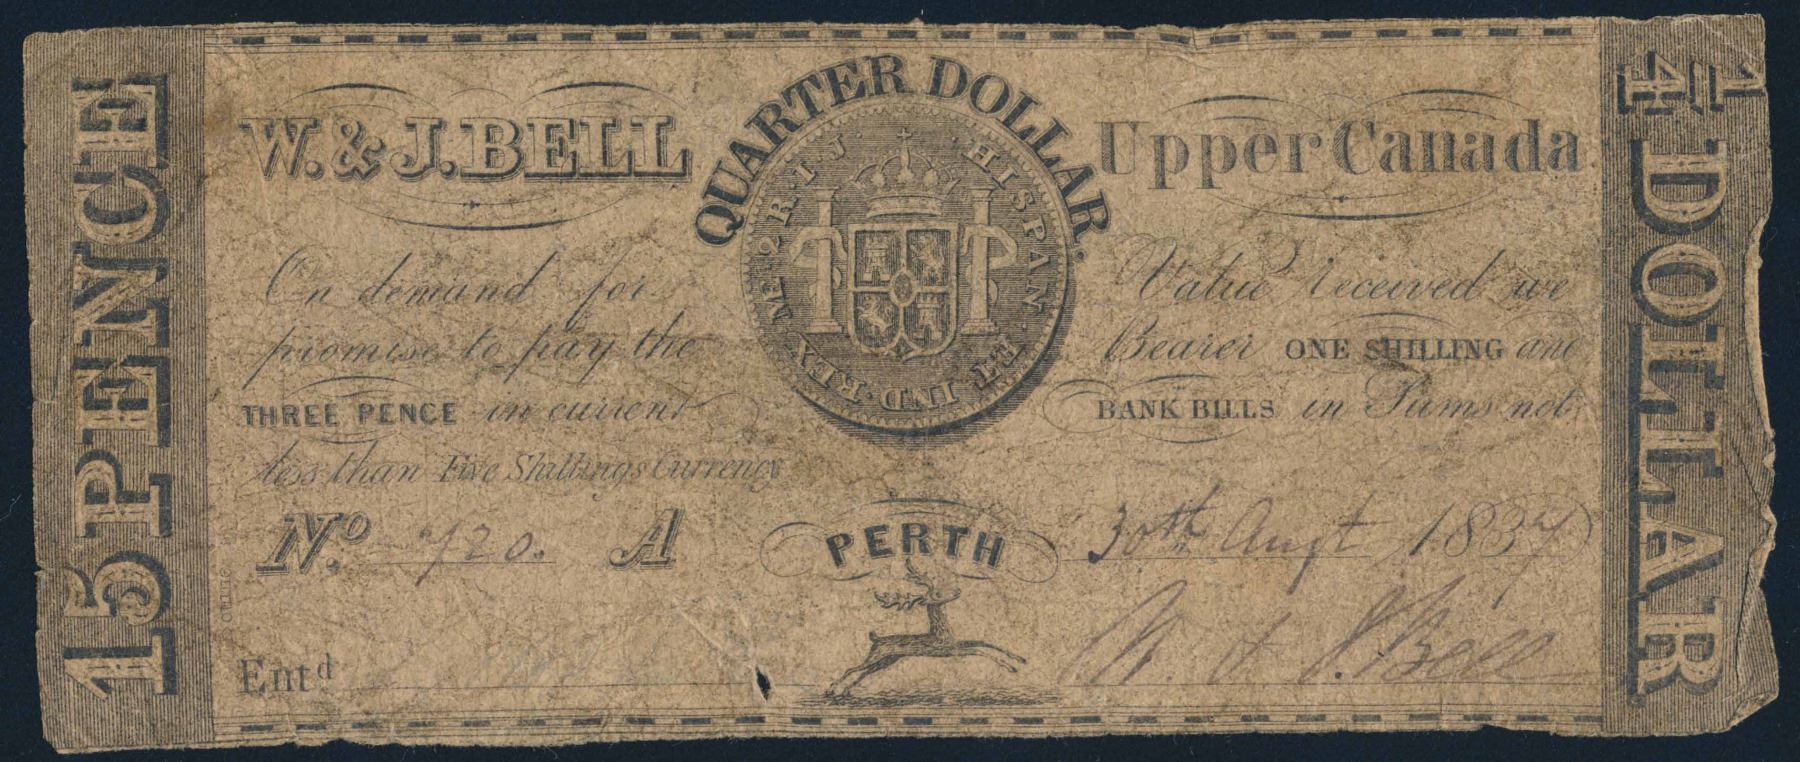 15 PENCE
QUARTER DOLLAR.
W. & J. BELL
Upper Canada
HISPAN · ET IND · REX M · 2 R · I J ·
On demand for Value received we
promise to pay the Bearer ONE SHILLING and
THREE PENCE in current BANK BILLS in Sums not
less than Five Shillings Currency
No. 720. A PERTH 30th Augt 1837
Entd W. & J. Bell
1/4 DOLLAR